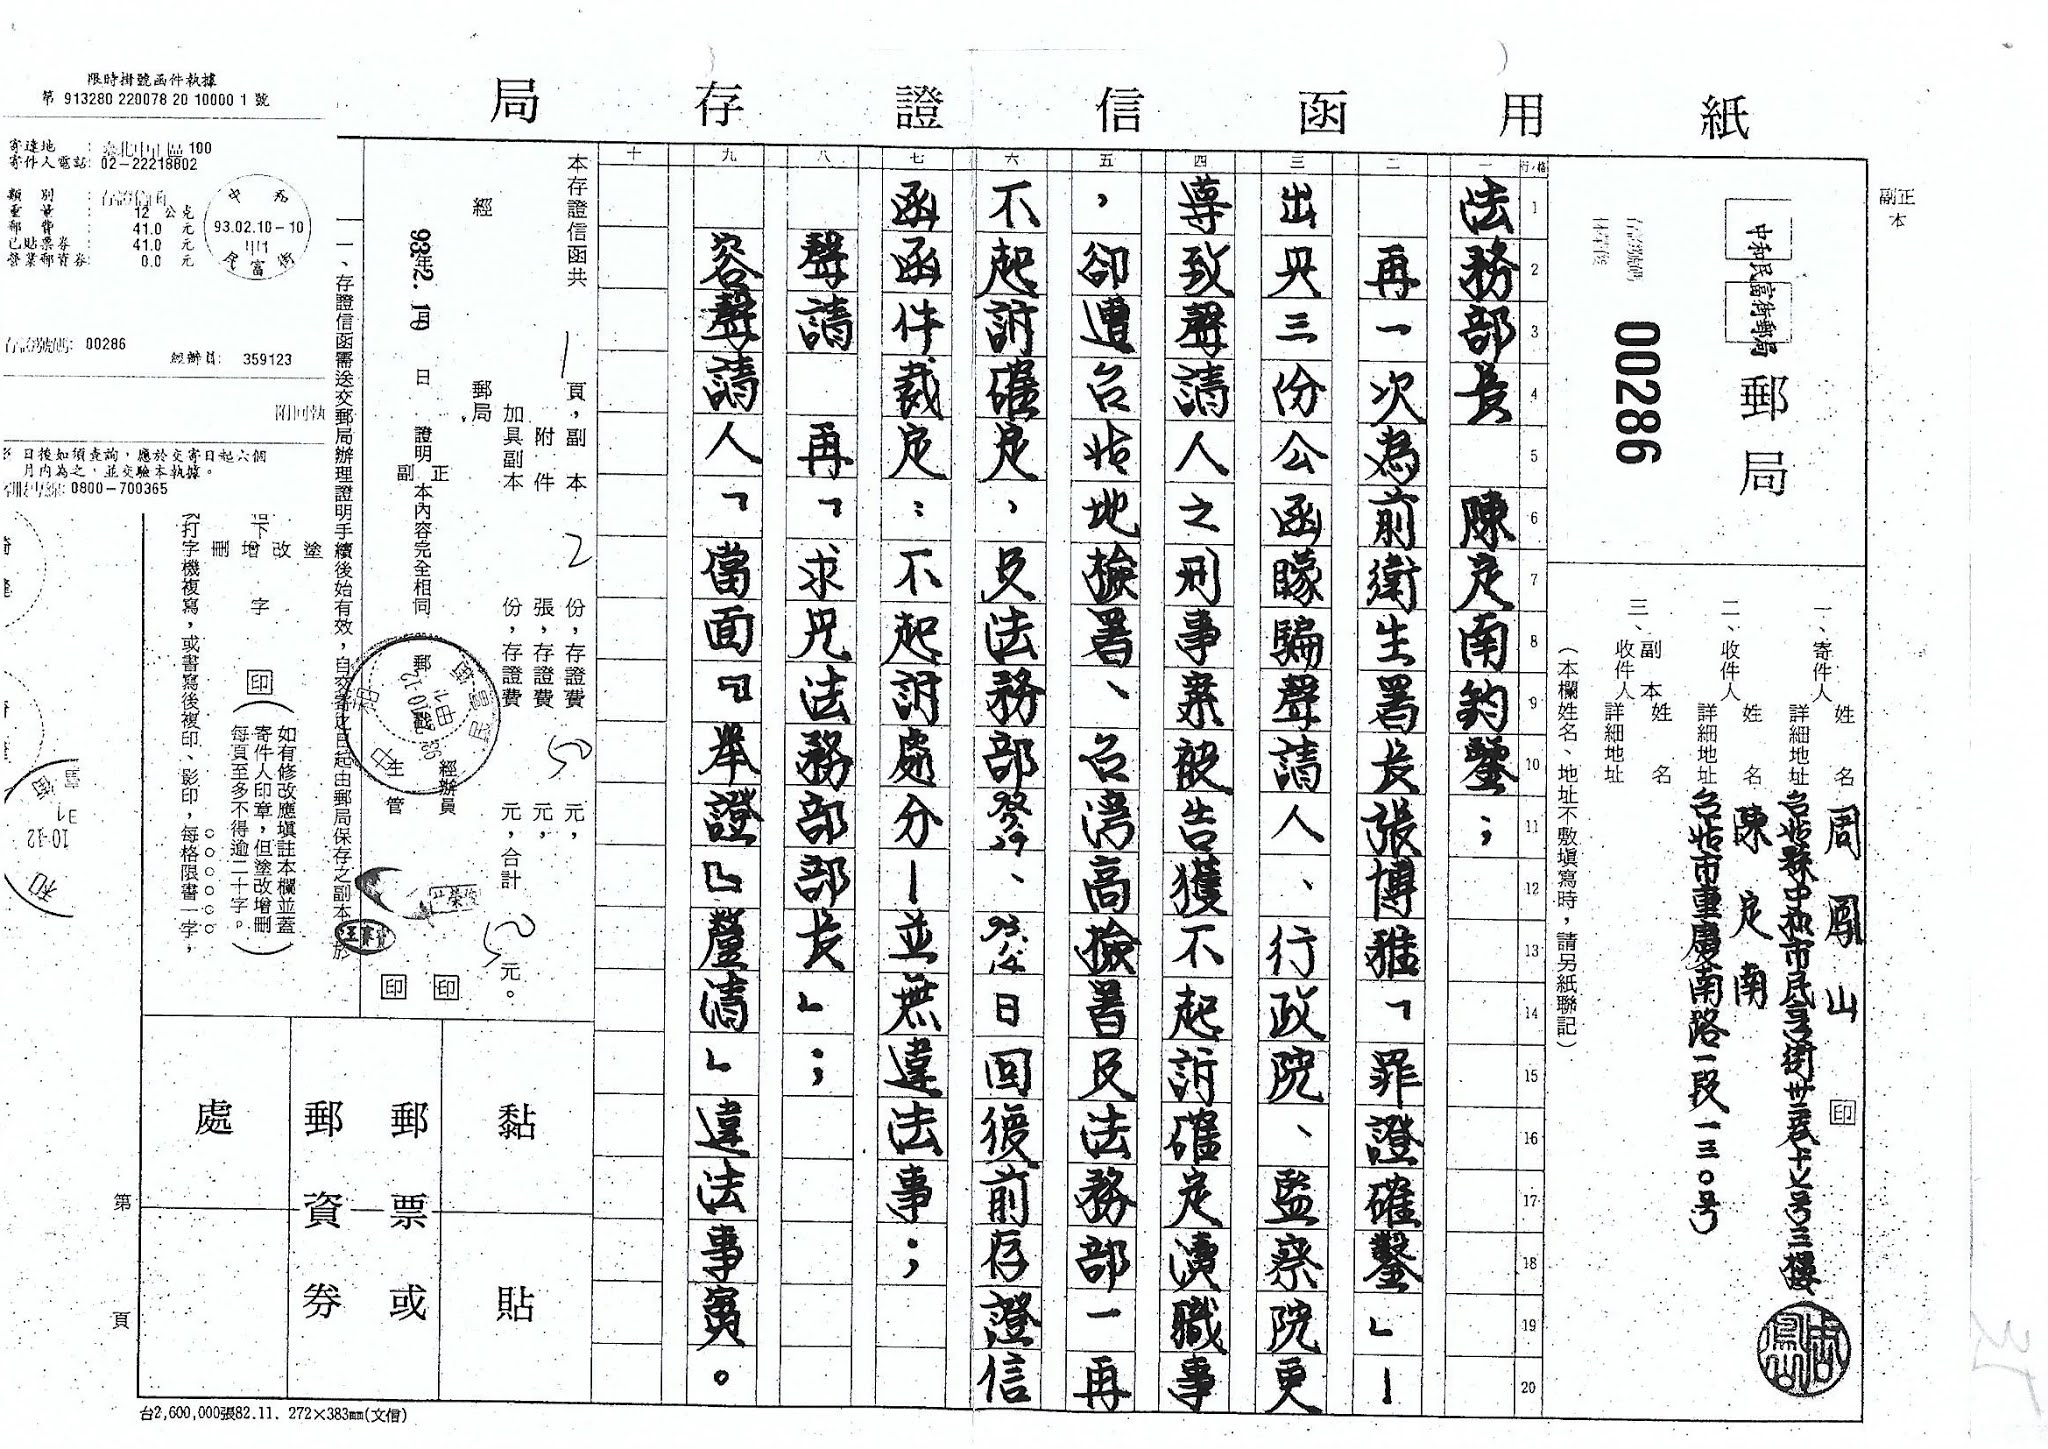 局存證信函用紙
副正本
中和民富街郵局
郵局
00286
一、寄件人 姓名 周鳳山 印
詳細地址 台北縣中和市民享街卅三巷十七号三樓
二、收件人 姓名 陳定南
詳細地址 台北市重慶南路一段一三〇号
三、副本收件人 姓名
詳細地址
（本欄姓名、地址不敷填寫時，請另紙聯記）
行/格 1 2 3 4 5 6 7 8 9 10 11 12 13 14 15 16 17 18 19 20
一 法務部長 陳定南鈞鑒；
二 再一次為前衛生署長張博雅「罪證確鑿」—
三 出具三份公函矇騙聲請人、行政院、監察院更
四 導致聲請人之刑事案被告獲不起訴確定瀆職事
五 ，卻遭台北地檢署、台灣高檢署及法務部一再
六 不起訴確定，及法務部92.5.29、93.1.14日回復前存證信
七 函函件裁定：不起訴處分—並無違法事；
八 聲請 再「求見法務部部長」；
九 容聲請人「當面『舉證』釐清」違法事實。
十
本存證信函共 1 頁，副本 2 份，存證費 50 元，
附件 張，存證費 元，
加具副本 份，存證費 元，合計 50 元。
經 郵局
93年2. 10 日 證明副正本內容完全相同
經辦員
主管
印 印
一、存證信函需送交郵局辦理證明手續後始有效，自交寄之日起由郵局保存之副本，於
塗改增刪
下
字
印
（如有修改應填註本欄並蓋寄件人印章，但塗改增刪每頁至多不得逾二十字。）
打字機複寫，或書寫後複印、影印，每格限書一字，
黏貼
郵票或
郵資券
處
第 頁
台2,600,000張82.11. 272×383㎜(文信)
限時掛號函件執據
第 913280 220078 20 10000 1 號
寄達地 : 臺北中正區 100
寄件人電話: 02-22218802
類別 : 存證信函
重量 : 12 公克
郵費 : 41.0 元
已貼票券 : 41.0 元
營業郵資券: 0.0 元
93.02.10-10
存證號碼: 00286
經辦員: 359123
附回執
日後如須查詢，應於交寄日起六個
月內為之，並交驗本執據。
0800-700365